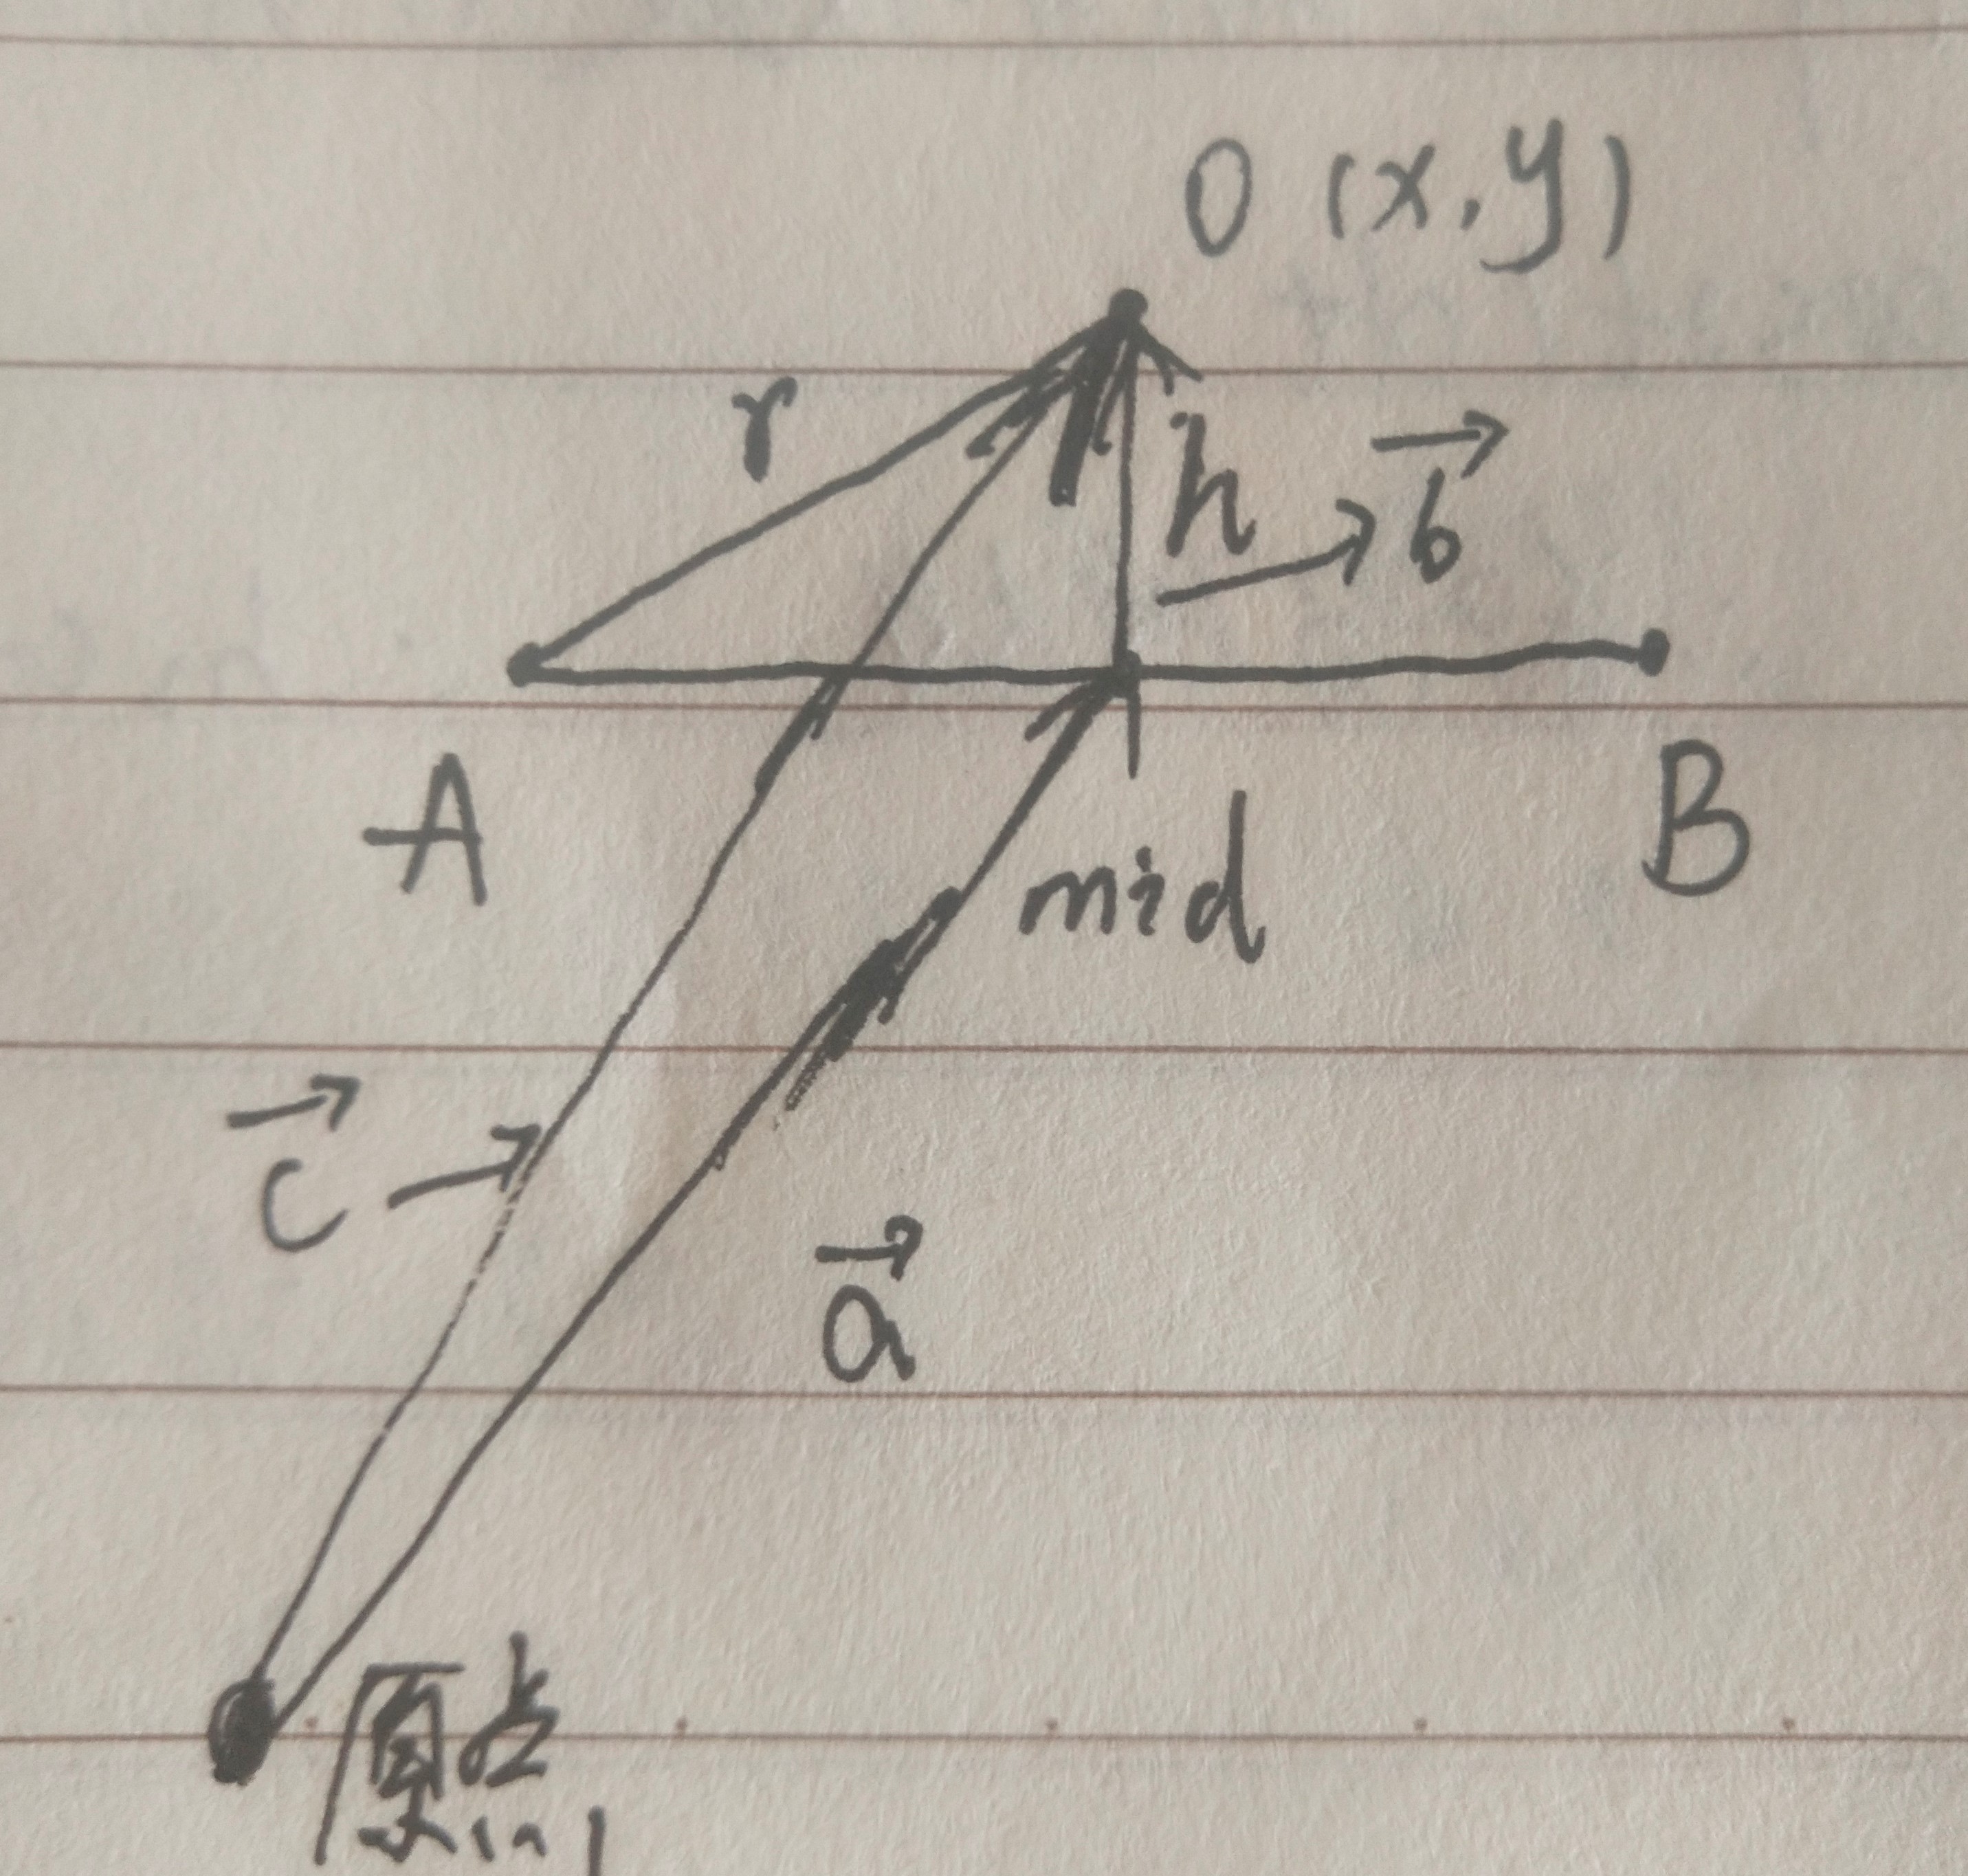 O (x,y)
r
h
b
A
B
mid
c
a
原点